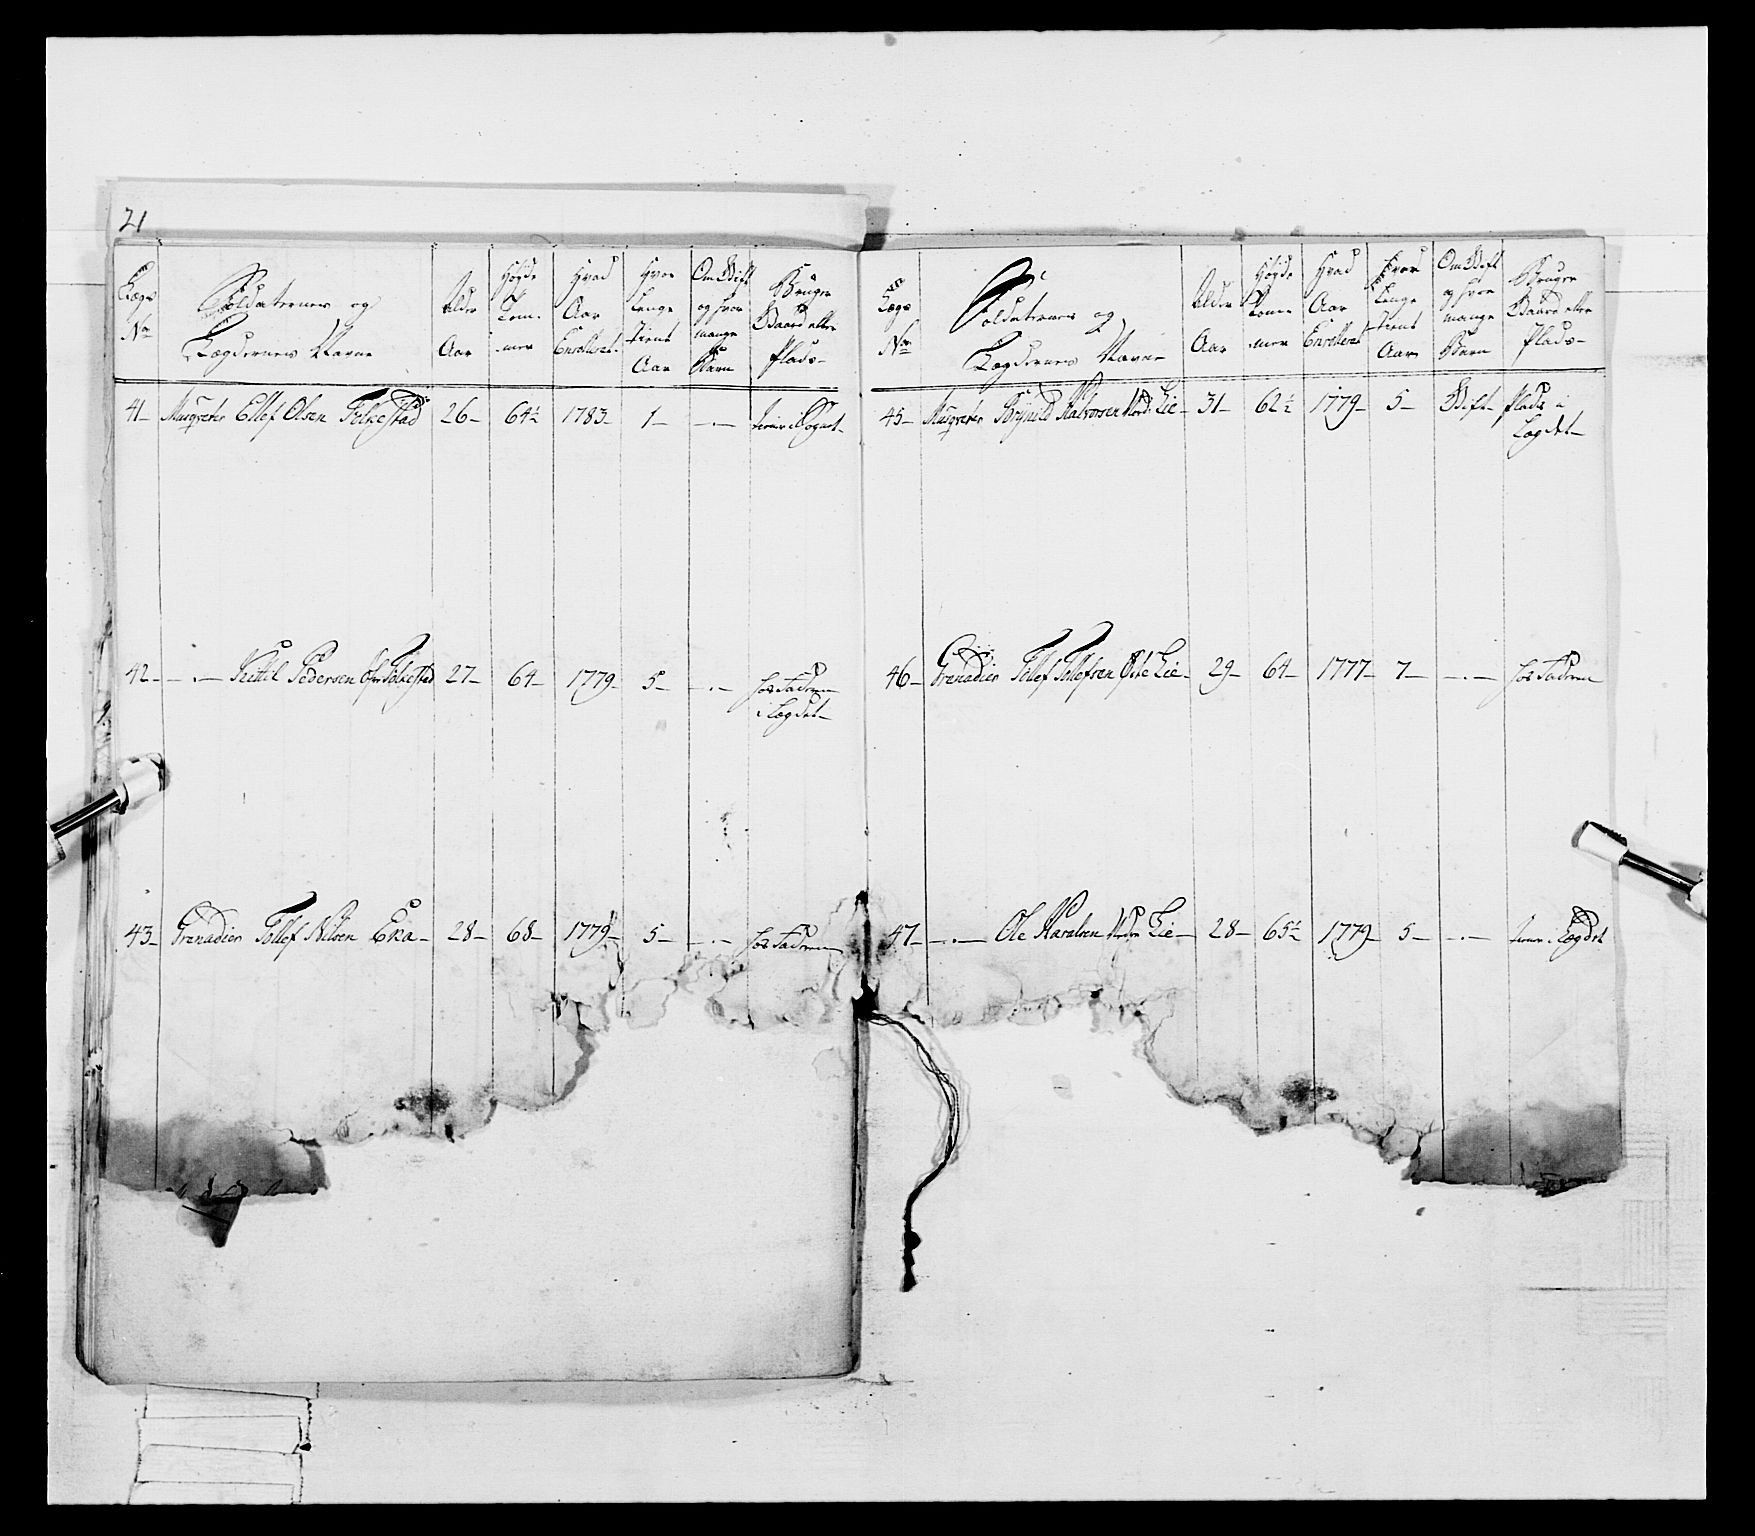 21
Lægs No Soldaternes og Lægdernes Navne Alder Aar Høyde Tommer Hvad Aar Enrolleret Hvor Længe Tient Aar Om Gift og hvor mange Barn Bruger Gaard eller Plads
41 Musqveter Ellef Olsen Folkestad 26 64½ 1783 1 -.- tiener i Sognet
42 -.- Kittil Pedersen Folkestad 27 64 1779 5 -.- hos Faderen
i Lægdet
43 Grenadier Tollef Nilsen Eka 28 68 1779 5 -.- hos Faderen
Lægs No Soldaternes og Lægdernes Navne Alder Aar Høyde Tommer Hvad Aar Enrolleret Hvor Længe Tient Aar Om Gift og hvor mange Barn Bruger Gaard eller Plads
45 Musqveter Brynild Halvorsen Nord Lie 31 62½ 1779 5 Gift Plads i
Lægdet
46 Grenadier Tollef Tollefsen Øste Lie 29 64 1777 7 -.- hos Faderen
47 -.- Ole Haralsen Lie 28 65½ 1779 5 -.- tiener i Lægdet